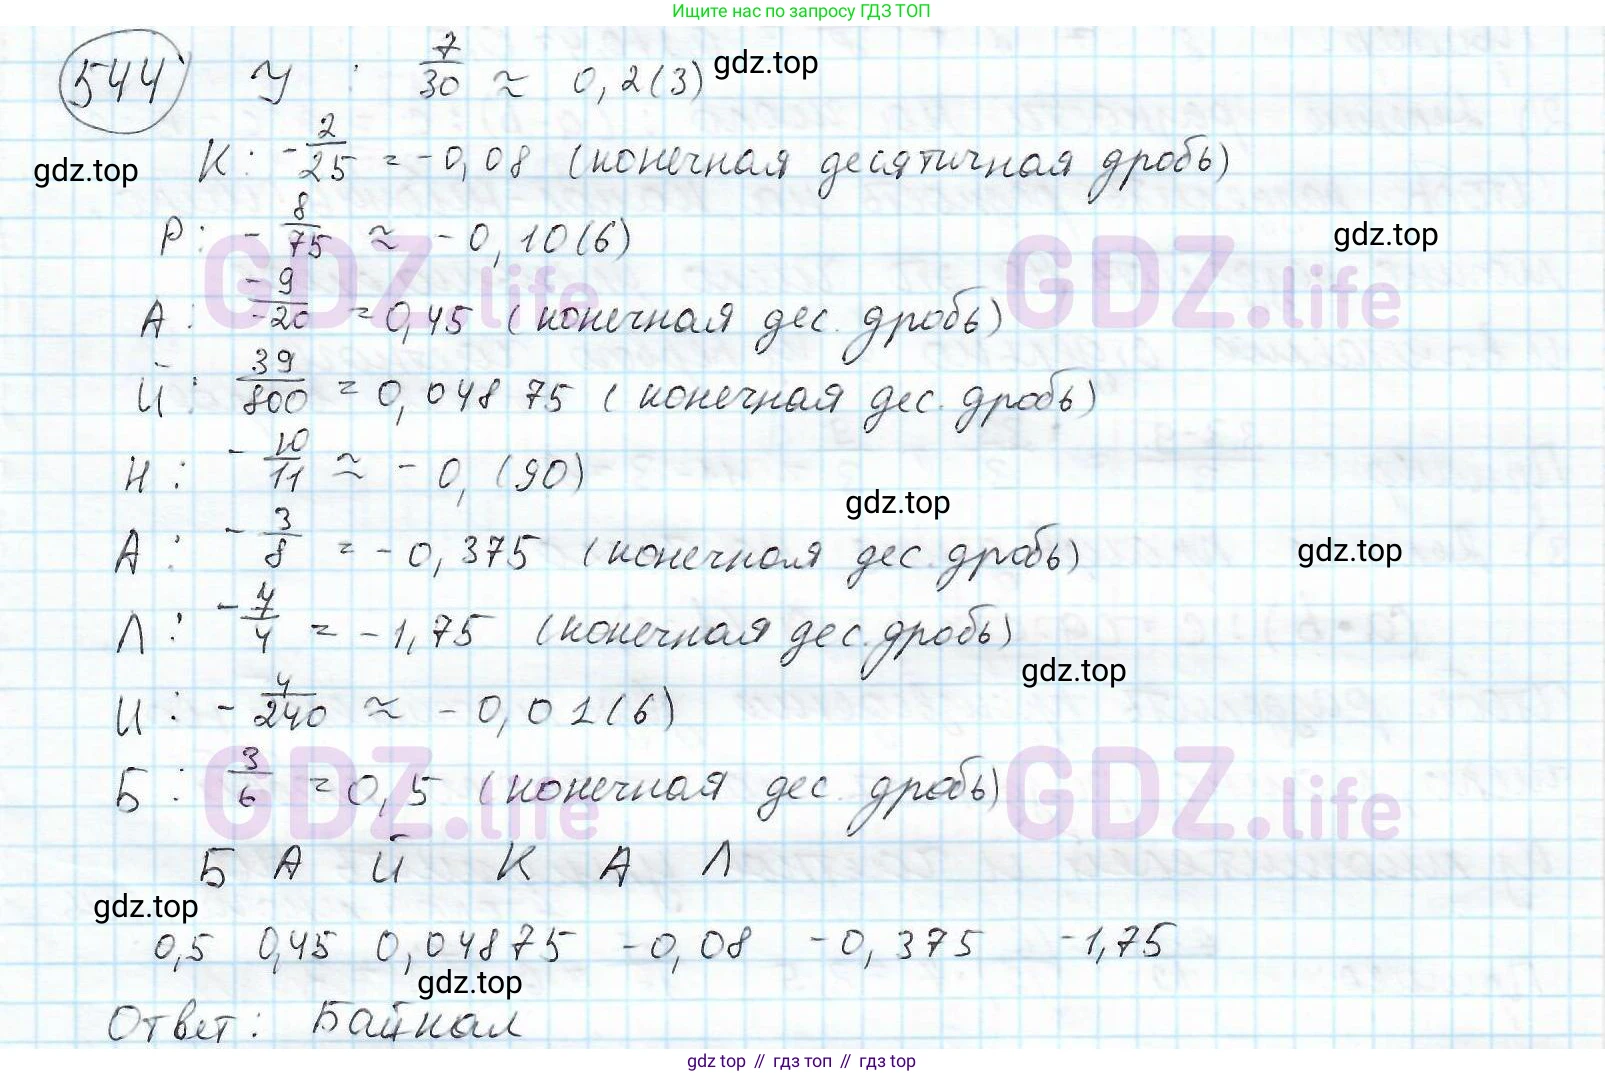 Ищите нас по запросу ГДЗ ТОП
544 У : 7/30 ≈ 0,2(3) gdz.top
gdz.top К: -2/25 = -0,08 (конечная десятичная дробь)
Р: -8/75 ≈ -0,10(6) gdz.top
GDZ.life GDZ.life
А: -9/-20 = 0,45 (конечная дес. дробь)
Й: 39/800 = 0,04875 (конечная дес. дробь)
Н: -10/11 ≈ -0,(90) gdz.top
А: -3/8 = -0,375 (конечная дес. дробь) gdz.top
Л: -7/4 = -1,75 (конечная дес. дробь) gdz.top
И: -4/240 ≈ -0,01(6)
GDZ.life GDZ.life
Б: 3/6 = 0,5 (конечная дес. дробь)
Б А Й К А Л
gdz.top
0,5 0,45 0,04875 -0,08 -0,375 -1,75
gdz.top
Ответ: Байкал
gdz top // гдз топ // gdz top